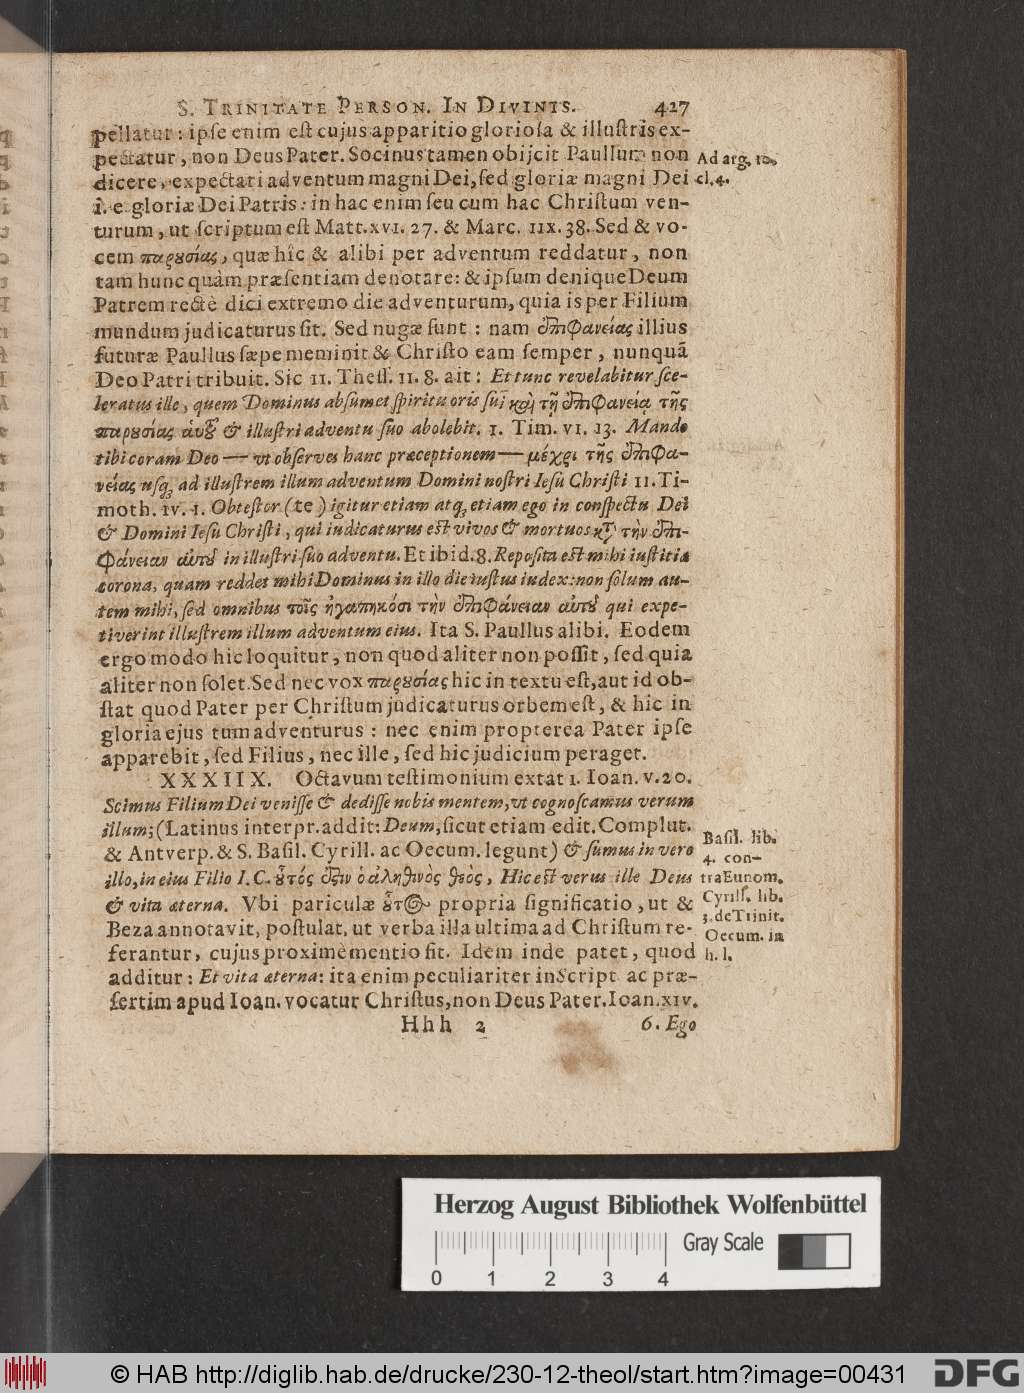 S. TRINITATE PERSON. IN DIVINIS. 427
pellatur: ipſe enim eſt cujus apparitio glorioſa & illuſtris ex-
pectatur, non Deus Pater. Socinus tamen obijcit Paullum non
Ad arg. 10.
dicere, expectari adventum magni Dei, ſed gloriæ magni Dei
cl. 4.
i. e. gloriæ Dei Patris: in hac enim ſeu cum hac Chriſtum ven-
turum, ut ſcriptum eſt Matt. XVI. 27. & Marc. IIX. 38. Sed & vo-
cem παρȣσίας, quæ hîc & alibi per adventum reddatur, non
tam hunc quàm præſentiam denotare: & ipſum denique Deum
Patrem rectè dici extremo die adventurum, quia is per Filium
mundum judicaturus ſit. Sed nugæ ſunt: nam ἐπιφανείας illius
futuræ Paullus ſæpe meminit & Chriſto eam ſemper, nunquã
Deo Patri tribuit. Sic II. Theſſ. II. 8. ait: Et tunc revelabitur ſce-
leratus ille, quem Dominus abſumet ſpiritu oris ſui καὶ τῇ ἐπιφανείᾳ τῆς
παρȣσίας αὑτȣ͂ & illuſtri adventu ſuo abolebit. 1. Tim. VI. 13. Mando
tibi coram Deo — ut obſerves hanc præceptionem — μέχρι τῆς ἐπιφα-
νείας uſq; ad illuſtrem illum adventum Domini noſtri Ieſu Chriſti II. Ti-
moth. IV. 1. Obteſtor (te) igitur etiam atq; etiam ego in conſpectu Dei
& Domini Ieſu Chriſti, qui iudicaturus eſt vivos & mortuos κατὰ τὴν ἐπι-
φάνειαν αὑτȣ͂ in illuſtri ſuo adventu. Et ibid. 8. Repoſita eſt mihi iuſtitiæ
corona, quam reddet mihi Dominus in illo die iuſtus iudex: non ſolum au-
tem mihi, ſed omnibus τοῖς ἠγαπηκόσι τὴν ἐπιφάνειαν αὐτȣ͂ qui expe-
tiverint illuſtrem illum adventum eius. Ita S. Paullus alibi. Eodem
ergo modo hic loquitur, non quod aliter non poſſit, ſed quia
aliter non ſolet. Sed nec vox παρȣσίας hic in textu eſt, aut id ob-
ſtat quod Pater per Chriſtum judicaturus orbem eſt, & hic in
gloria ejus tum adventurus: nec enim propterea Pater ipſe
apparebit, ſed Filius, nec ille, ſed hic judicium peraget.
XXXIIX. Octavum teſtimonium extat 1. Ioan. V. 20.
Scimus Filium Dei veniſſe & dediſſe nobis mentem, ut cognoſcamus verum
illum; (Latinus interpr. addit: Deum, ſicut etiam edit. Complut.
& Antverp. & S. Baſil. Cyrill. ac Oecum. legunt) & ſumus in vero
illo, in eius Filio I. C. ȣ̔͂τός ἐστιν ὁ ἀληθινὸς θεὸς, Hic eſt verus ille Deus
& vita æterna. Vbi pariculæ ȣ̔͂τος propria ſignificatio, ut &
Beza annotavit, poſtulat, ut verba illa ultima ad Chriſtum re-
ferantur, cujus proximè mentio fit. Idem inde patet, quod
additur: Et vita æterna: ita enim peculiariter in Script. ac præ-
ſertim apud Ioan. vocatur Chriſtus, non Deus Pater. Ioan. XIV.
Baſil. lib.
4. con-
tra Eunom.
Cyrill. lib.
3. de Trinit.
Oecum. in
h. l.
Hhh 2 6. Ego
Herzog August Bibliothek Wolfenbüttel
Gray Scale
0 1 2 3 4
© HAB http://diglib.hab.de/drucke/230-12-theol/start.htm?image=00431
DFG